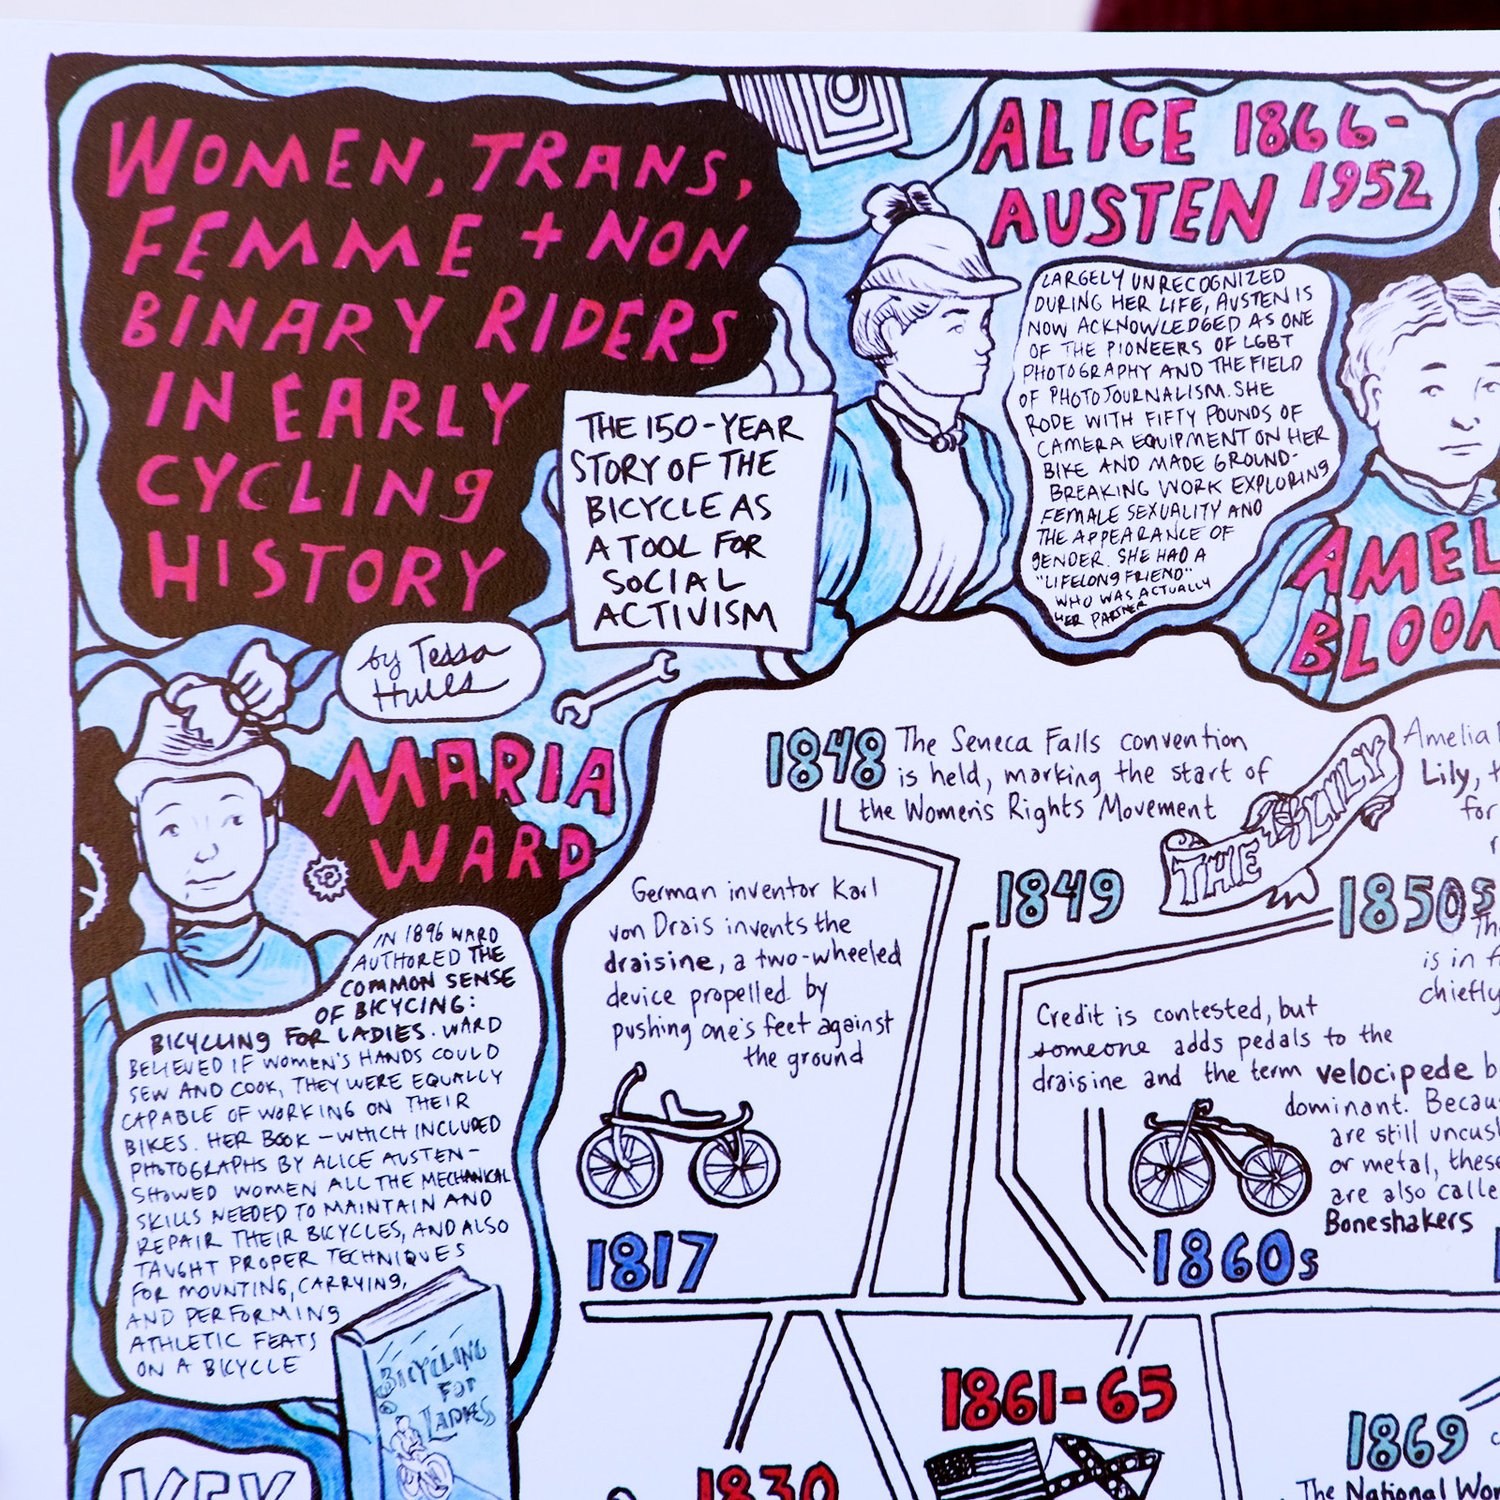 WOMEN, TRANS,
FEMME + NON
BINARY RIDERS
IN EARLY
CYCLING
HISTORY
THE 150-YEAR
STORY OF THE
BICYCLE AS
A TOOL FOR
SOCIAL
ACTIVISM
by Tessa
Hulls
ALICE 1866-
AUSTEN 1952
LARGELY UNRECOGNIZED
DURING HER LIFE, AUSTEN IS
NOW ACKNOWLEDGED AS ONE
OF THE PIONEERS OF LGBT
PHOTOGRAPHY AND THE FIELD
OF PHOTOJOURNALISM. SHE
RODE WITH FIFTY POUNDS OF
CAMERA EQUIPMENT ON HER
BIKE AND MADE GROUND-
BREAKING WORK EXPLORING
FEMALE SEXUALITY AND
THE APPEARANCE OF
GENDER. SHE HAD A
"LIFELONG FRIEND"
WHO WAS ACTUALLY
HER PARTNER
AMEL
BLOOM
MARIA
WARD
IN 1896 WARD
AUTHORED THE
COMMON SENSE
OF BICYCING:
BICYCLING FOR LADIES. WARD
BELIEVED IF WOMEN'S HANDS COULD
SEW AND COOK, THEY WERE EQUALLY
CAPABLE OF WORKING ON THEIR
BIKES. HER BOOK – WHICH INCLUDED
PHOTOGRAPHS BY ALICE AUSTEN –
SHOWED WOMEN ALL THE MECHANICAL
SKILLS NEEDED TO MAINTAIN AND
REPAIR THEIR BICYCLES, AND ALSO
TAUGHT PROPER TECHNIQUES
FOR MOUNTING, CARRYING,
AND PERFORMING
ATHLETIC FEATS
ON A BICYCLE
BICYCLING
FOR
LADIES
KEY
1848 The Seneca Falls convention
is held, marking the start of
the Women's Rights Movement
THE LILY
Amelia
Lily,
for
1849
1850s
The
is in
chiefly
German inventor Karl
von Drais invents the
draisine, a two-wheeled
device propelled by
pushing one's feet against
the ground
1817
Credit is contested, but
someone adds pedals to the
draisine and the term velocipede b
dominant. Becau
are still uncush
or metal, these
are also calle
Boneshakers
1860s
1861-65
1830
1869
The National Wor